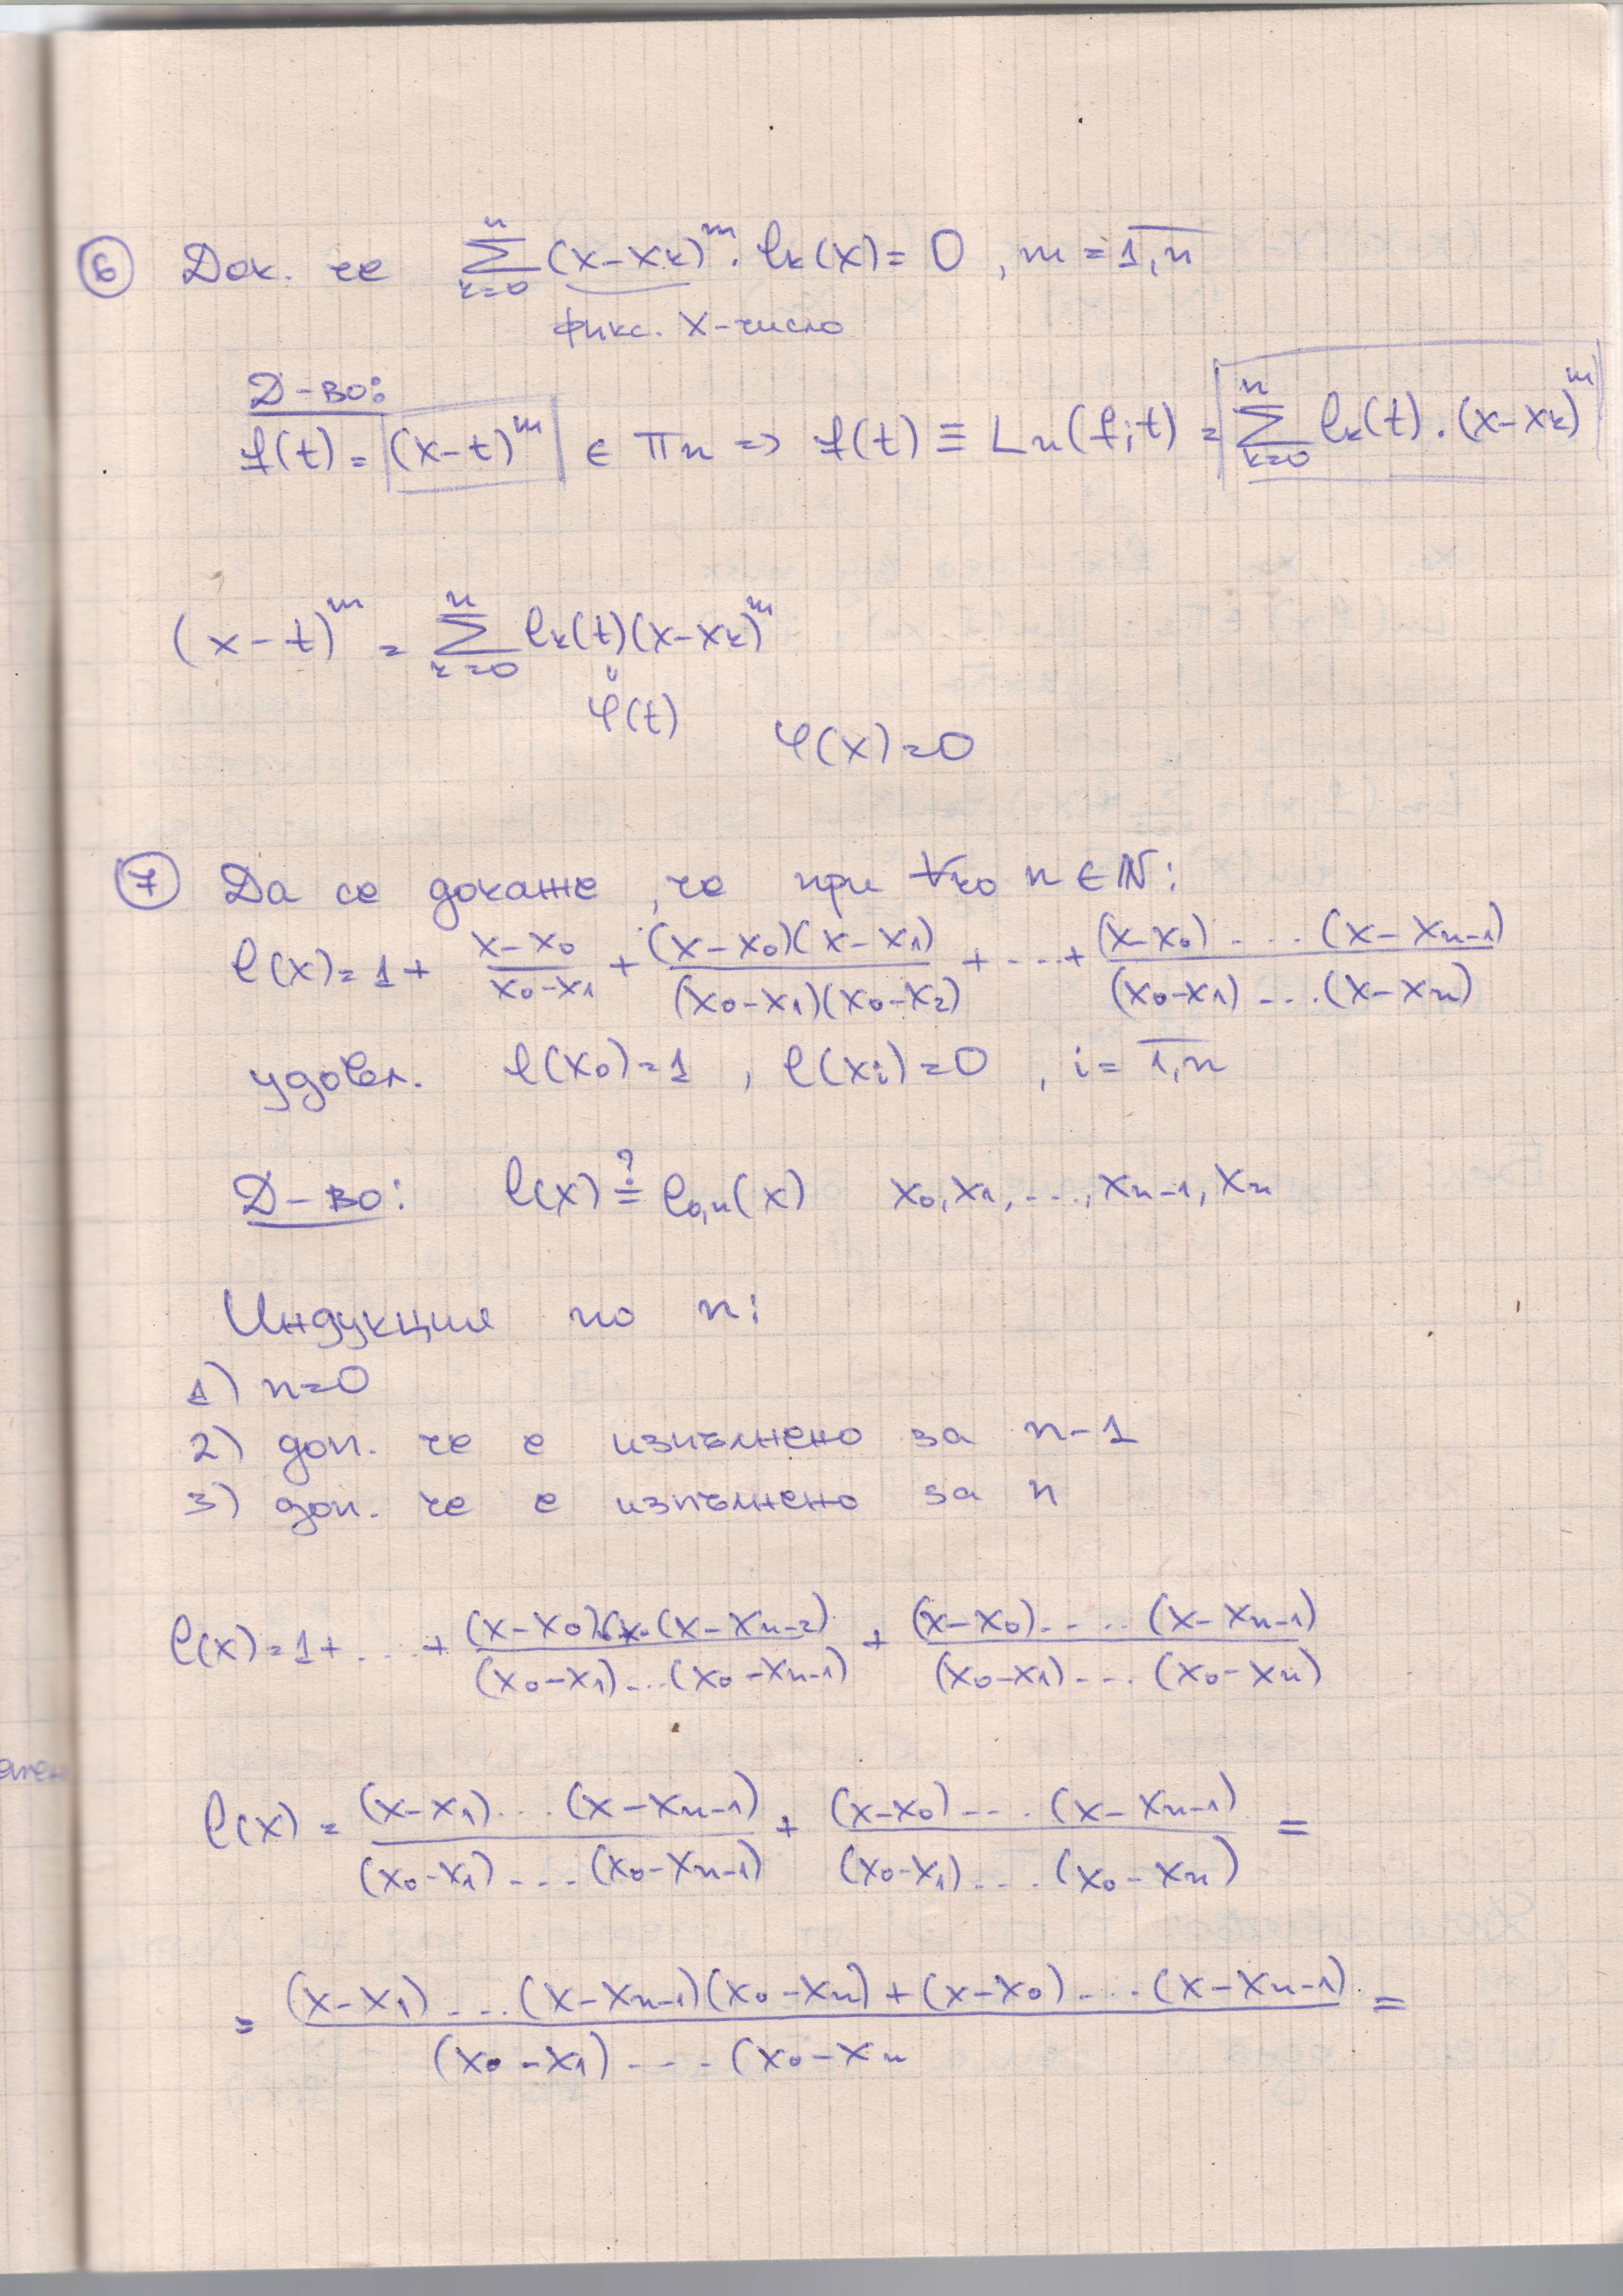 ⑥ Док. че $\sum_{k=0}^{n} (x-x_k)^m \cdot \ell_k(x) = 0$ , $m = \overline{1,n}$
фикс. x-число
Д-во:
$f(t) = (x-t)^m \in \pi_n \Rightarrow f(t) \equiv L_n(f;t) = \sum_{k=0}^{n} \ell_k(t) \cdot (x-x_k)^m$
$(x-t)^m = \sum_{k=0}^{n} \ell_k(t)(x-x_k)^m$
$\varphi(t)$
$\varphi(x) = 0$
⑦ Да се докаже, че при ∀ко $n \in \mathbb{N}$:
$\ell(x) = 1 + \frac{x-x_0}{x_0-x_1} + \frac{(x-x_0)(x-x_1)}{(x_0-x_1)(x_0-x_2)} + \dots + \frac{(x-x_0) \dots (x-x_{n-1})}{(x_0-x_1) \dots (x-x_n)}$
удовл. $\ell(x_0) = 1$ , $\ell(x_i) = 0$ , $i = \overline{1,n}$
Д-во: $\ell(x) \overset{?}{=} \ell_{0,n}(x)$ $x_0, x_1, \dots, x_{n-1}, x_n$
Индукция по n:
1) n=0
2) доп. че е изпълнено за n-1
3) доп. че е изпълнено за n
$\ell(x) = 1 + \dots + \frac{(x-x_0) \dots (x-x_{n-2})}{(x_0-x_1) \dots (x_0-x_{n-1})} + \frac{(x-x_0) \dots (x-x_{n-1})}{(x_0-x_1) \dots (x_0-x_n)}$
$\ell(x) = \frac{(x-x_1) \dots (x-x_{n-1})}{(x_0-x_1) \dots (x_0-x_{n-1})} + \frac{(x-x_0) \dots (x-x_{n-1})}{(x_0-x_1) \dots (x_0-x_n)} =$
$= \frac{(x-x_1) \dots (x-x_{n-1})(x_0-x_n) + (x-x_0) \dots (x-x_{n-1})}{(x_0-x_1) \dots (x_0-x_n} =$